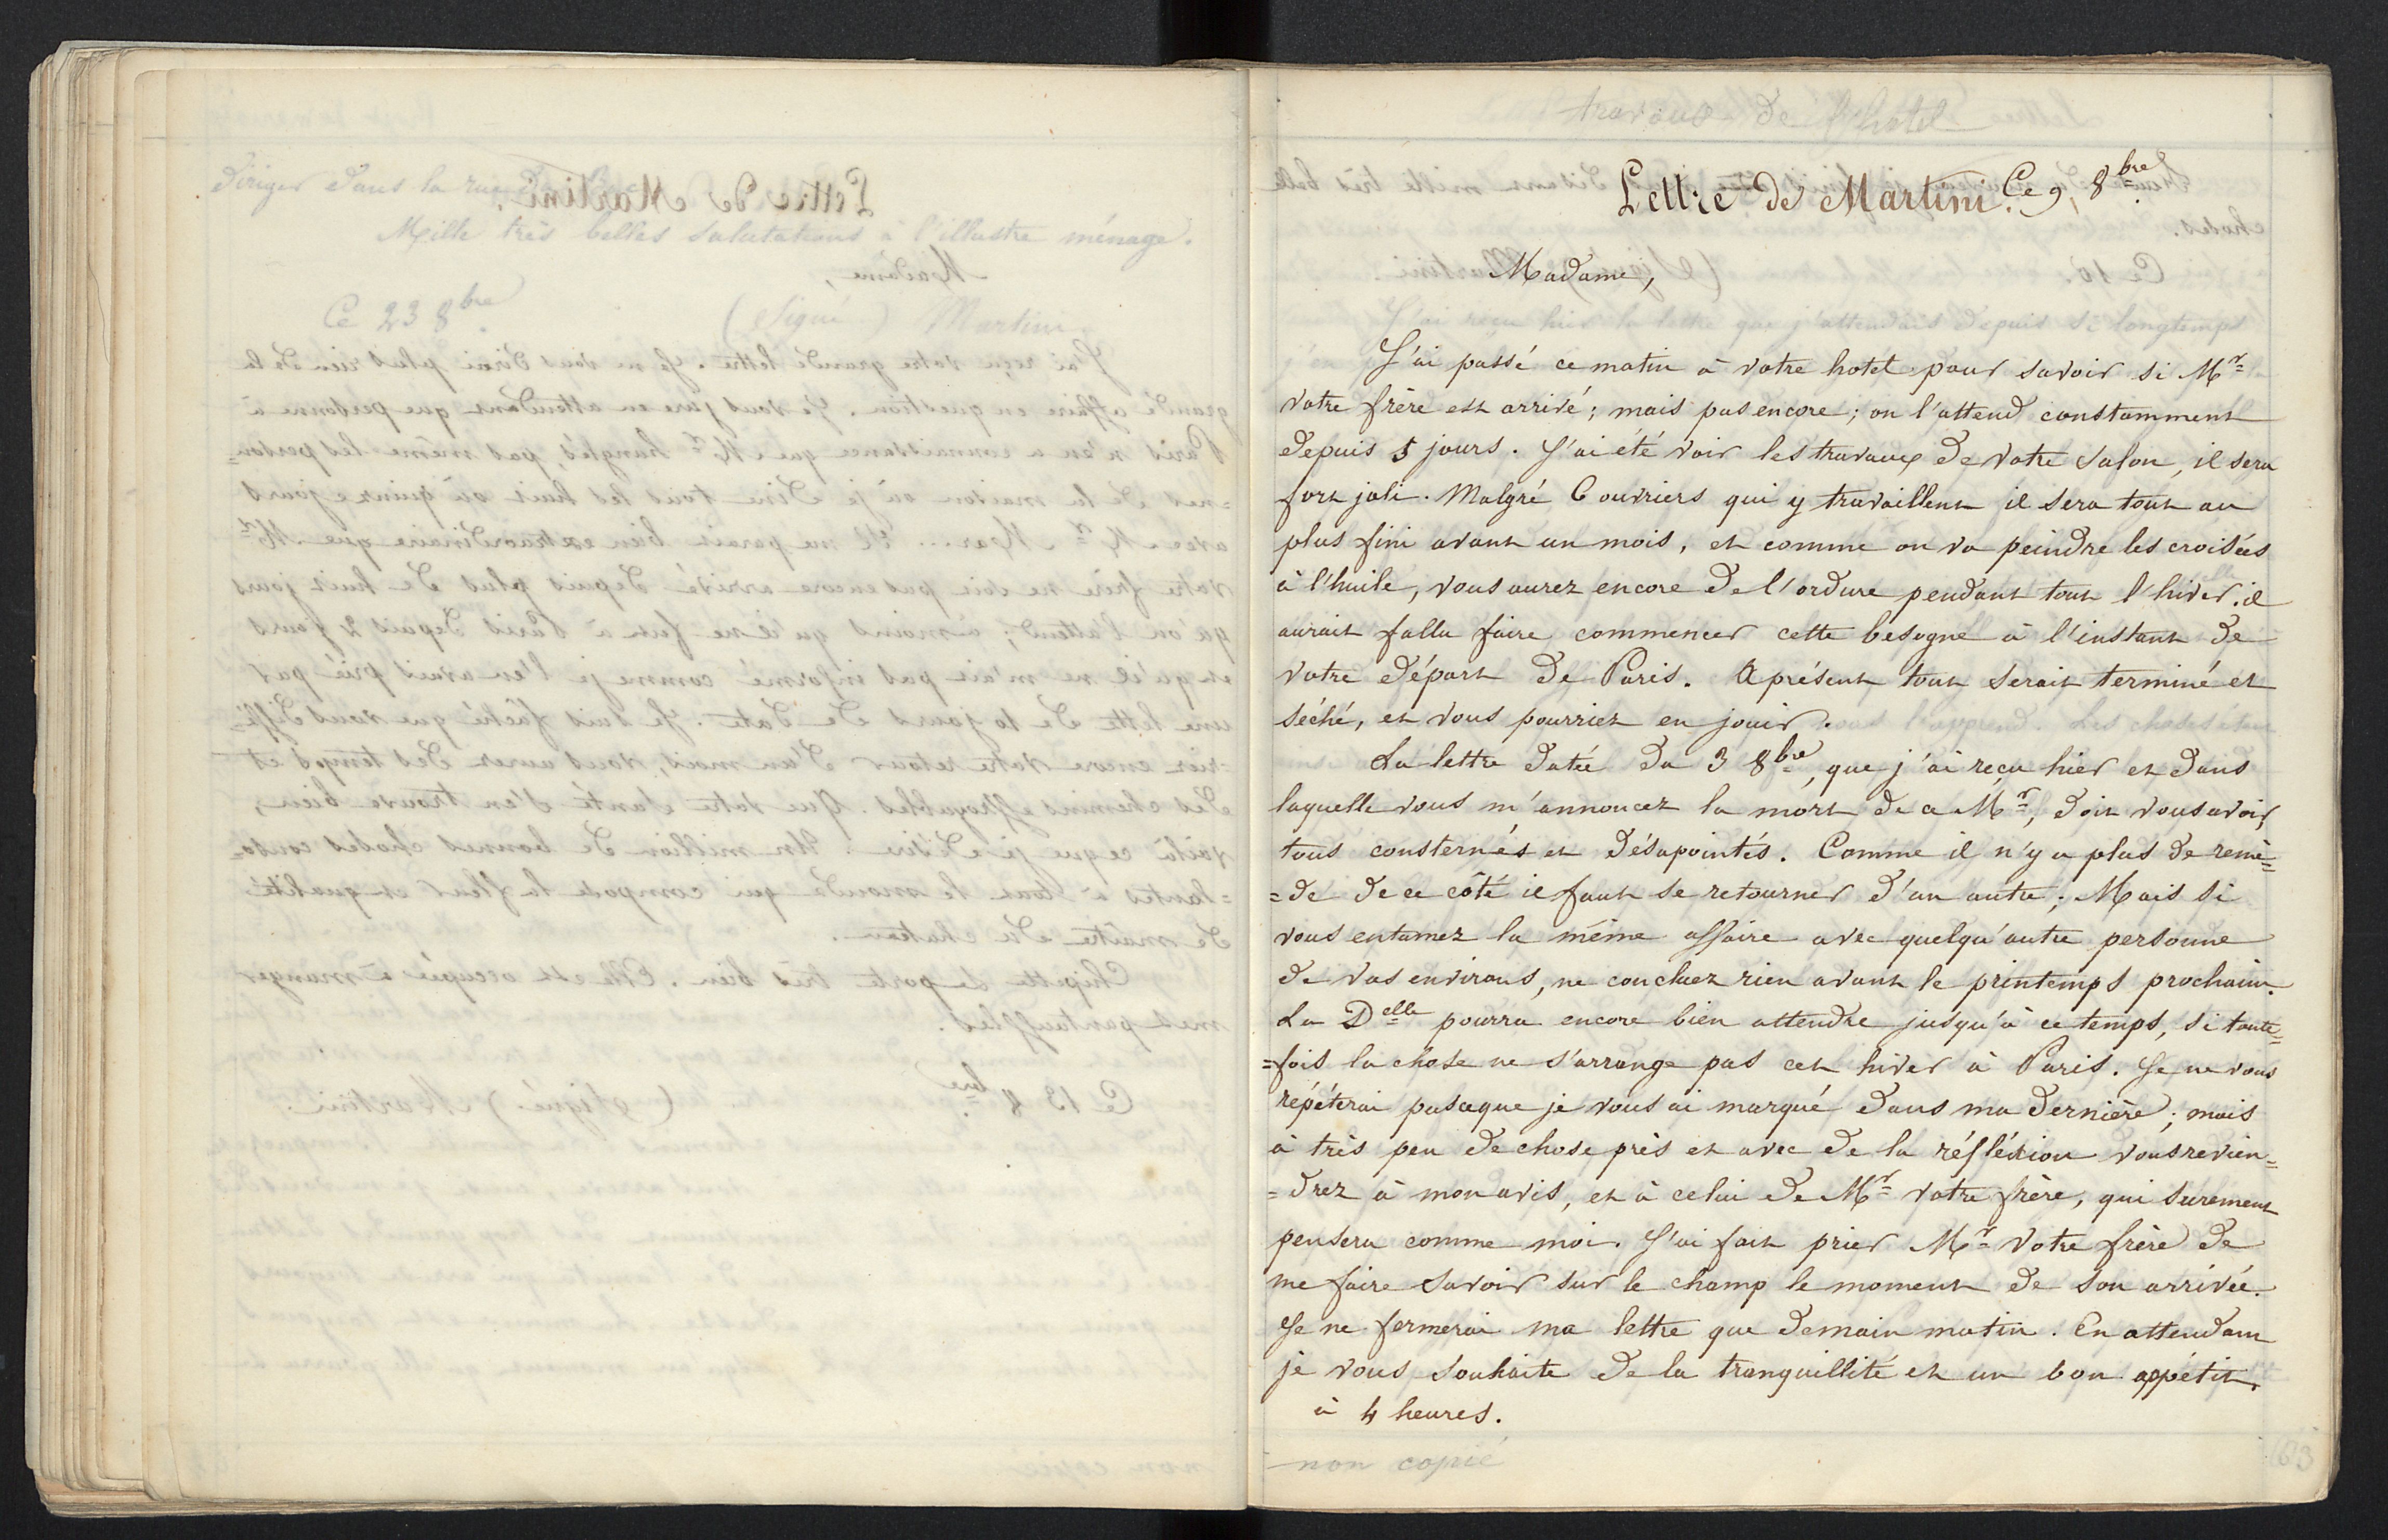 diriger dans la rue
Mille très belles salutations à l'illustre ménage.
Ce 23 8bre
(Signé) Martini.
travaux de l'hotel
Lettre de Martini. Ce 9 8bre.
Madame,
J'ai passé ce matin à votre hotel pour savoir si Mr
votre frère est arrivé; mais pas encore; on l'attend constamment
depuis 5 jours. J'ai été voir les travaux de votre salon, il sera
fort joli. Malgré 6 ouvriers qui y travaillent il sera tout au
plus fini avant un mois, et comme on va peindre les croisées
à l'huile, vous aurez encore de l'ordure pendant tout l'hiver. il
aurait fallu faire commencer cette besogne à l'instant de
votre départ de Paris. Aprésent tout serait terminé et
séché, et vous pourriez en jouir.
La lettre datée du 3 8bre, que j'ai reçu hier et dans
laquelle vous m'annoncez la mort de ce Mr, doit vous avoir
tous consternés et désapointés. Comme il n'y a plus de remè=
=de de ce côté il faut se retourner d'un autre; Mais si
vous entamez la même affaire avec quelqu'autre personne
de vos environs, ne concluez rien avant le printemps prochain.
La Delle pourra encore bien attendre jusqu'à ce temps, si toute=
=fois la chose ne s'arrange pas cet hiver à Paris. Je ne vous
répéterai pas ce que je vous ai marqué dans ma dernière; mais
à très peu de chose près et avec de la réfléxion vous revien=
=drez à mon avis, et à celui de Mr votre frère, qui surement
pensera comme moi. J'ai fait prier Mr votre frère de
me faire savoir sur le champ le moment de son arrivée.
Je ne fermerai ma lettre que demain matin. En attendant
je vous souhaite de la tranquillité et un bon appétit
à 4 heures.
non copié
163